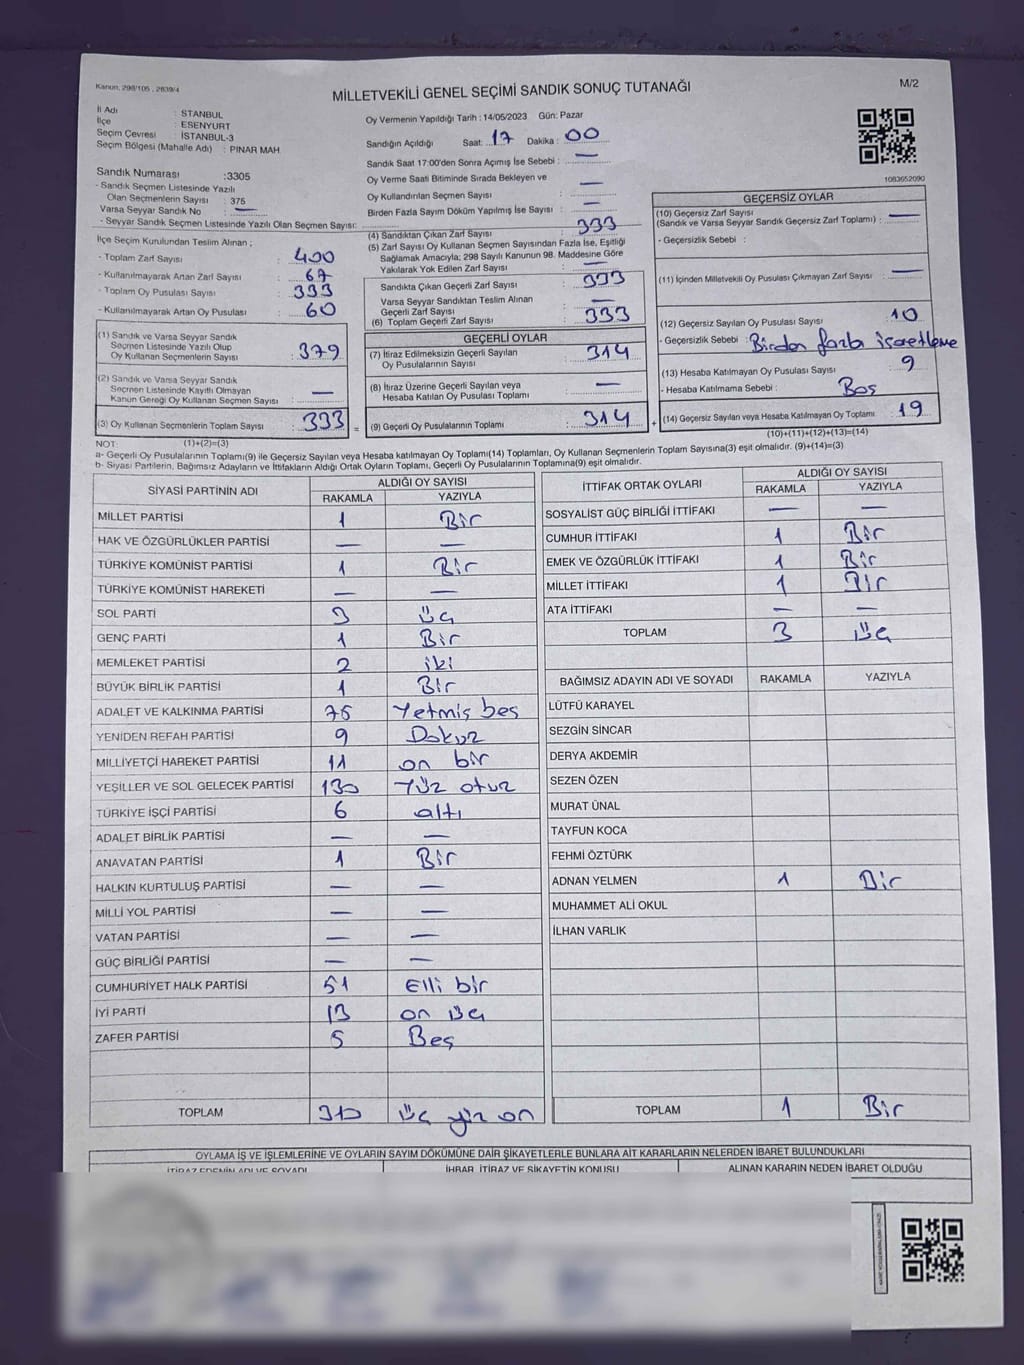 Kanun, 298/105 , 2839/4
MİLLETVEKİLİ GENEL SEÇİMİ SANDIK SONUÇ TUTANAĞI
M/2
İl Adı : STANBUL
İlçe : ESENYURT
Seçim Çevresi : İSTANBUL-3
Seçim Bölgesi (Mahalle Adı) : PINAR MAH
Sandık Numarası :3305
- Sandık Seçmen Listesinde Yazılı
Olan Seçmenlerin Sayısı : 375
Varsa Seyyar Sandık No : —
- Seyyar Sandık Seçmen Listesinde Yazılı Olan Seçmen Sayısı:
İlçe Seçim Kurulundan Teslim Alınan ;
- Toplam Zarf Sayısı : 400
- Kullanılmayarak Artan Zarf Sayısı : 67
- Toplam Oy Pusulası Sayısı : 393
- Kullanılmayarak Artan Oy Pusulası : 60
(1) Sandık ve Varsa Seyyar Sandık
Seçmen Listesinde Yazılı Olup
Oy Kullanan Seçmenlerin Sayısı : 379
(2) Sandık ve Varsa Seyyar Sandık
Seçmen Listesinde Kayıtlı Olmayan
Kanun Gereği Oy Kullanan Seçmen Sayısı : —
(3) Oy Kullanan Seçmenlerin Toplam Sayısı : 333
Oy Vermenin Yapıldığı Tarih : 14/05/2023 Gün: Pazar
Sandığın Açıldığı Saat: 17 Dakika : 00
Sandık Saat 17:00'den Sonra Açımış İse Sebebi : —
Oy Verme Saati Bitiminde Sırada Bekleyen ve
Oy Kullandırılan Seçmen Sayısı : —
Birden Fazla Sayım Döküm Yapılmış İse Sayısı : —
(4) Sandıktan Çıkan Zarf Sayısı : 333
(5) Zarf Sayısı Oy Kullanan Seçmen Sayısından Fazla İse, Eşitliği
Sağlamak Amacıyla; 298 Sayılı Kanunun 98. Maddesine Göre
Yakılarak Yok Edilen Zarf Sayısı : —
Sandıkta Çıkan Geçerli Zarf Sayısı : 333
Varsa Seyyar Sandıktan Teslim Alınan
Geçerli Zarf Sayısı : —
(6) Toplam Geçerli Zarf Sayısı : 333
GEÇERLİ OYLAR
(7) İtiraz Edilmeksizin Geçerli Sayılan
Oy Pusulalarının Sayısı : 314
(8) İtiraz Üzerine Geçerli Sayılan veya
Hesaba Katılan Oy Pusulası Toplamı : —
(9) Geçerli Oy Pusulalarının Toplamı : 314
1083652090
GEÇERSİZ OYLAR
(10) Geçersiz Zarf Sayısı
(Sandık ve Varsa Seyyar Sandık Geçersiz Zarf Toplamı) : —
- Geçersizlik Sebebi :
(11) İçinden Milletvekili Oy Pusulası Çıkmayan Zarf Sayısı : —
(12) Geçersiz Sayılan Oy Pusulası Sayısı : 10
- Geçersizlik Sebebi : Birden fazla işaretleme
(13) Hesaba Katılmayan Oy Pusulası Sayısı : 9
- Hesaba Katılmama Sebebi : Boş
(14) Geçersiz Sayılan veya Hesaba Katılmayan Oy Toplamı : 19
NOT: (1)+(2)=(3)
(10)+(11)+(12)+(13)=(14)
a- Geçerli Oy Pusulaları Toplamı(9) ile Geçersiz Sayılan veya Hesaba katılmayan Oy Toplamı(14) Toplamları, Oy Kullanan Seçmenlerin Toplam Sayısına(3) eşit olmalıdır. (9)+(14)=(3)
b- Siyasi Partilerin, Bağımsız Adayların ve İttifakların Aldığı Ortak Oyların Toplamı, Geçerli Oy Pusulalarının Toplamına(9) eşit olmalıdır.
SİYASİ PARTİNİN ADI ALDIĞI OY SAYISI
RAKAMLA YAZIYLA
MİLLET PARTİSİ 1 Bir
HAK VE ÖZGÜRLÜKLER PARTİSİ — —
TÜRKİYE KOMÜNİST PARTİSİ 1 Bir
TÜRKİYE KOMÜNİST HAREKETİ — —
SOL PARTİ 3 üç
GENÇ PARTİ 1 Bir
MEMLEKET PARTİSİ 2 iki
BÜYÜK BİRLİK PARTİSİ 1 Bir
ADALET VE KALKINMA PARTİSİ 75 Yetmiş beş
YENİDEN REFAH PARTİSİ 9 Dokuz
MİLLİYETÇİ HAREKET PARTİSİ 11 on bir
YEŞİLLER VE SOL GELECEK PARTİSİ 130 Yüz otuz
TÜRKİYE İŞÇİ PARTİSİ 6 altı
ADALET BİRLİK PARTİSİ — —
ANAVATAN PARTİSİ 1 Bir
HALKIN KURTULUŞ PARTİSİ — —
MİLLİ YOL PARTİSİ — —
VATAN PARTİSİ — —
GÜÇ BİRLİĞİ PARTİSİ — —
CUMHURİYET HALK PARTİSİ 51 Elli bir
İYİ PARTİ 13 on üç
ZAFER PARTİSİ 5 Beş
TOPLAM 310 üç yüz on
İTTİFAK ORTAK OYLARI ALDIĞI OY SAYISI
RAKAMLA YAZIYLA
SOSYALİST GÜÇ BİRLİĞİ İTTİFAKI — —
CUMHUR İTTİFAKI 1 Bir
EMEK VE ÖZGÜRLÜK İTTİFAKI 1 Bir
MİLLET İTTİFAKI 1 Bir
ATA İTTİFAKI — —
TOPLAM 3 üç
BAĞIMSIZ ADAYIN ADI VE SOYADI RAKAMLA YAZIYLA
LÜTFÜ KARAYEL
SEZGİN SİNCAR
DERYA AKDEMİR
SEZEN ÖZEN
MURAT ÜNAL
TAYFUN KOCA
FEHMİ ÖZTÜRK
ADNAN YELMEN 1 Bir
MUHAMMET ALİ OKUL
İLHAN VARLIK
TOPLAM 1 Bir
OYLAMA İŞ VE İŞLEMLERİNE VE OYLARIN SAYIM DÖKÜMÜNE DAİR ŞİKAYETLERLE BUNLARA AİT KARARLARIN NELERDEN İBARET BULUNDUKLARI
İTİRAZ EDENİN ADI VE SOYADI İHBAR, İTİRAZ VE ŞİKAYETİN KONUSU ALINAN KARARIN NEDEN İBARET OLDUĞU